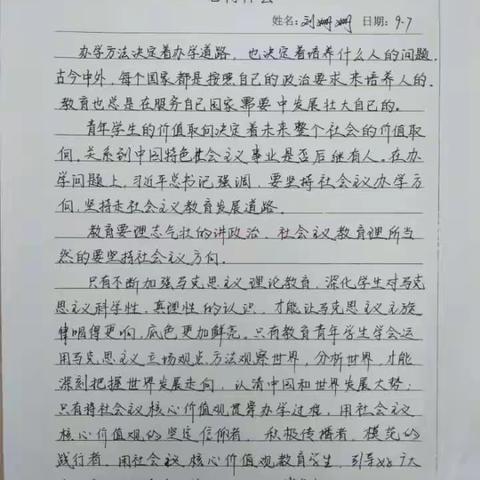 心得体会
姓名：刘姗姗 日期：9.7
办学方法决定着办学道路，也决定着培养什么人的问题.
古今中外，每个国家都是按照自己的政治要求来培养人的.
教育也总是在服务自己国家需要中发展壮大自己的。
青年学生的价值取向决定着未来整个社会的价值取
向，关系到中国特色社会主义事业是否后继有人。在办
学问题上，习近平总书记强调，要坚持社会主义办学方
向，坚持走社会主义教育发展道路。
教育要理志气壮的讲政治，社会主义教育理所当
然的要坚持社会主义方向。
只有不断加强马克思主义理论教育，深化学生对马克
思主义科学性，真理性的认识，才能让马克思主义主旋
律唱得更响，底色更加鲜亮。只有教育青年学生学会运
用马克思主义立场观点方法观察世界，分析世界，才能
深刻把握世界发展走向，认清中国和世界发展大势；
只有将社会主义核心价值观贯穿办学过程，用社会主义
核心价值观的坚定信仰者，积极传播者，模范的
践行者，用社会主义核心价值观教育学生，引导好广大